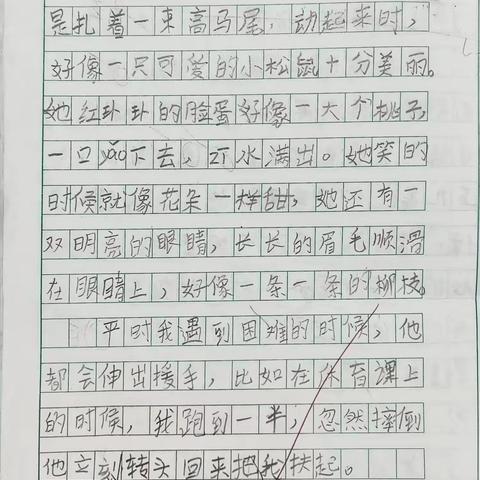 是扎着一束高马尾，动起来时，
好像一只可爱的小松鼠十分美丽。
她红卟卟的脸蛋好像一大个桃子，
一口yǎo下去，汁水满出。她笑的
时候就像花朵一样甜，她还有一
双明亮的眼睛，长长的眉毛顺滑
在眼睛上，好像一条一条的柳枝。
平时我遇到困难的时候，他
都会伸出援手，比如在体育课上
的时候，我跑到一半，忽然摔倒
他立刻转头回来把我扶起。